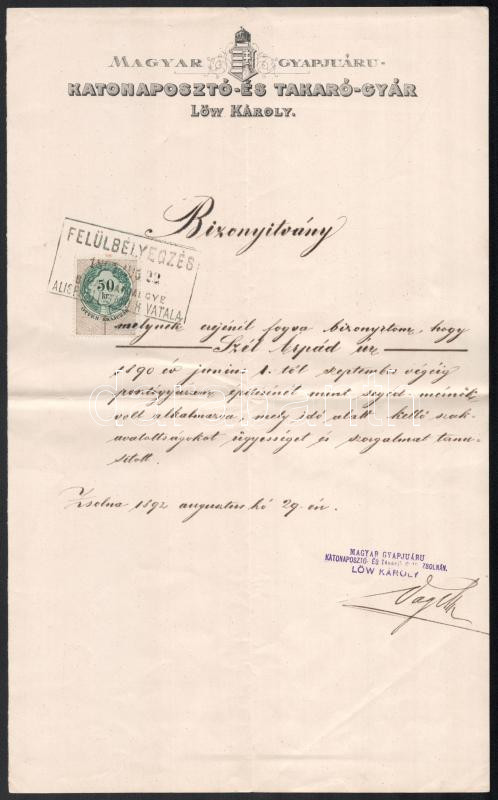 MAGYAR GYAPJUÁRU-
KATONAPOSZTÓ-ÉS TAKARÓ-GYÁR
LÖW KÁROLY.
Bizonyitvány
FELÜLBÉLYEGZÉS
50
melynek erejénél fogva bizonyitom, hogy
Szél Árpád úr
1890 év junius 1. től szeptember végéig
posztógyáram építésénél mint segéd mérnök
volt alkalmazva, mely idő alatt kellő szak-
avatottságokat ügyességet és szorgalmat tanu-
sitott.
Zsolna 1892 augusztus hó 29-én.
MAGYAR GYAPJUÁRU
KATONAPOSZTÓ- ÉS ZSOLNÁN.
LÖW KÁROLY